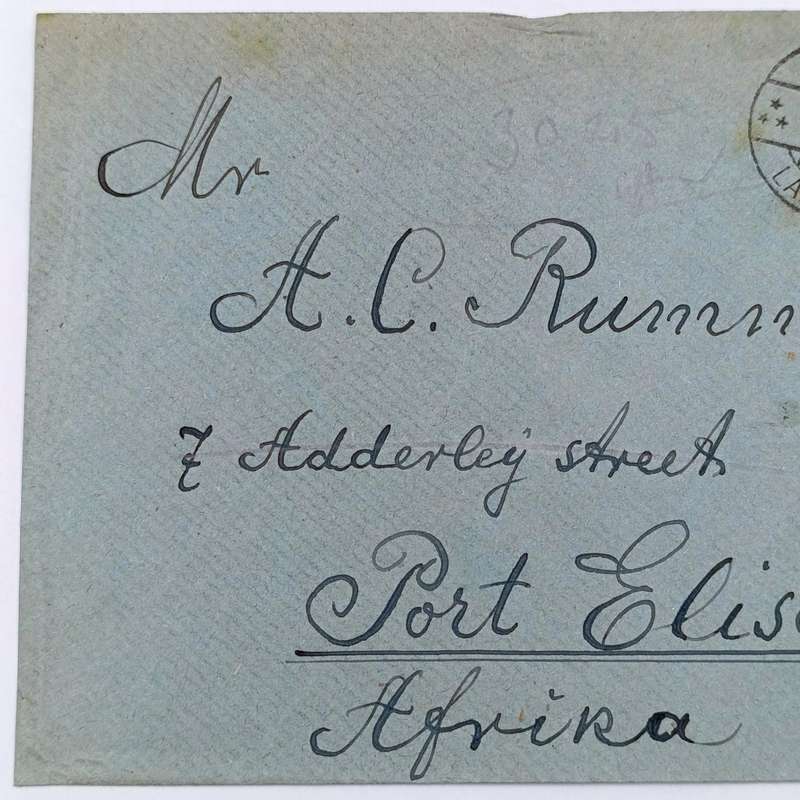 Mr
A. C. Rumm
7 Adderley street
Port Elise
Afrika
LA